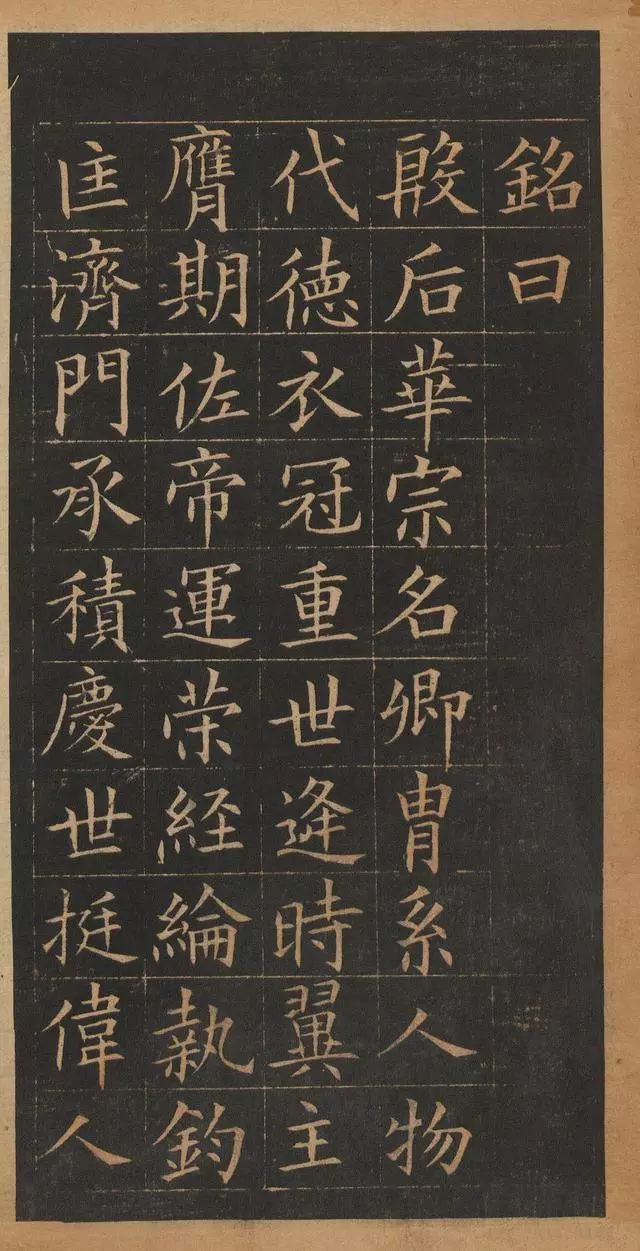 銘曰
殷后華宗名卿胄系人物
代德衣冠重世逢時翼主
膺期佐帝運荣経綸執鈞
匡濟門承積慶世挺偉人